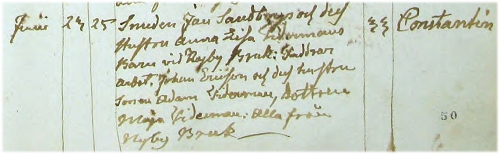 Junii 24 25 Smeden Jan Sandbergs och dess
hustru Anna Lisa Widermans
Barn vid Nyby Bruk: Faddrar
arbet. Johan Ericson och dess hustru
Sonen Adam Widerman, Dottren
Maja Widerman: alla från
Nyby Bruk
Constantin
50